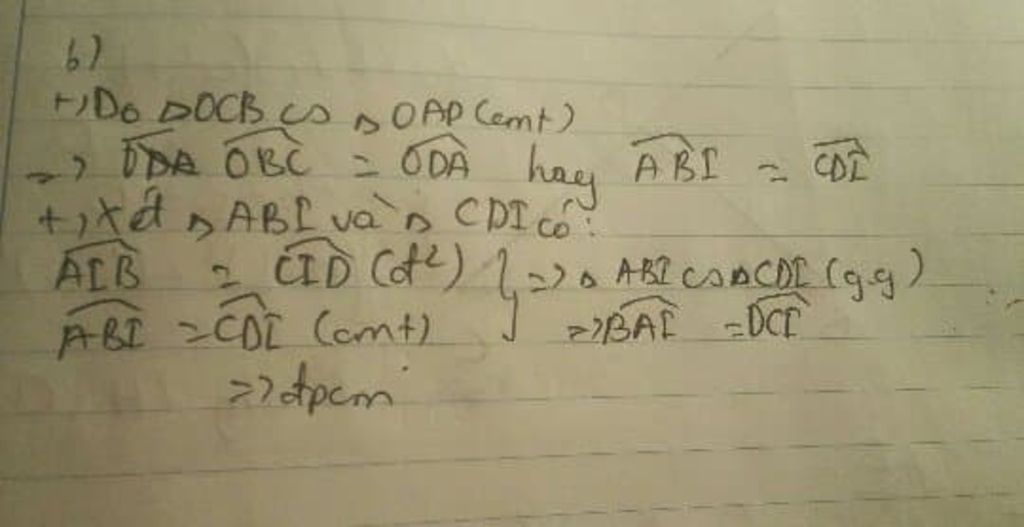 b)
+, Do ΔOCB ∽ ΔOAD (cmt)
=> OBC = ODA hay ABI = CDI
+, Xét ΔABI và Δ CDI có:
AIB = CID (đ²) } => Δ ABI ∽ ΔCDI (g.g)
ABI = CDI (cmt) => BAI = DCI
=> đpcm